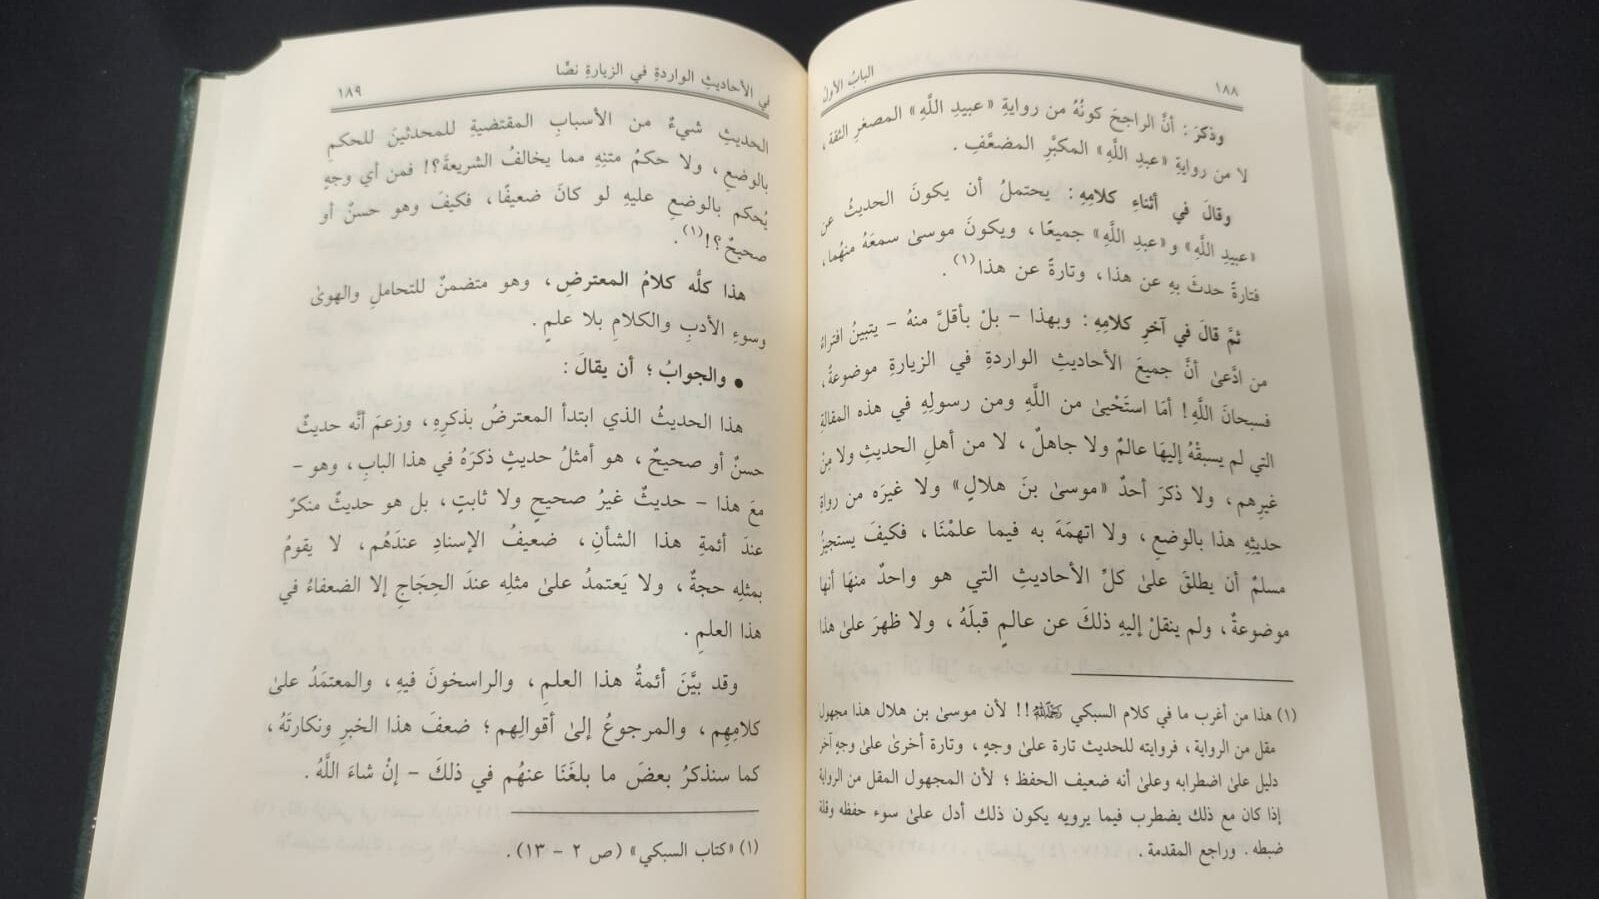 ١٨٨
البابُ الأولُ
وذكرَ : أنَّ الراجحَ كونُهُ من روايةِ «عبيدِ اللَّهِ» المصغرِ الثقة ،
لا من روايةِ «عبدِ اللَّهِ» المكبَّرِ المضعَّفِ .
وقالَ في أثناءِ كلامِهِ : يحتملُ أن يكونَ الحديثُ عن
«عبيدِ اللَّهِ» و«عبدِ اللَّهِ» جميعًا ، ويكونَ موسىٰ سمعَهُ منهُما ،
فتارةً حدثَ بهِ عن هذا ، وتارةً عن هذا(١) .
ثمَّ قالَ في آخرِ كلامِهِ : وبهذا – بلْ بأقلَّ منهُ – يتبينُ افتراءُ
من ادَّعىٰ أنَّ جميعَ الأحاديثِ الواردةِ في الزيارةِ موضوعةٌ ،
فسبحانَ اللَّهِ ! أمَا استَحْيىٰ من اللَّهِ ومن رسولِهِ في هذه المقالةِ
التي لم يسبقْهُ إليهَا عالمٌ ولا جاهلٌ ، لا من أهلِ الحديثِ ولا مِنْ
غيرِهم ، ولا ذكرَ أحدٌ «موسىٰ بنَ هلالٍ» ولا غيرَه من رواةِ
حديثِهِ هذا بالوضعِ ، ولا اتهمَهَ به فيما علمْنَا ، فكيفَ يستجيزُ
مسلمٌ أن يطلقَ علىٰ كلِّ الأحاديثِ التي هو واحدٌ منهَا أنها
موضوعةٌ ، ولم ينقلْ إليهِ ذلكَ عن عالمٍ قبلَهُ ، ولا ظهرَ علىٰ هذا
(١) هذا من أغرب ما في كلام السبكي رحمه الله !! لأن موسىٰ بن هلال هذا مجهول
مقل من الرواية ، فروايته للحديث تارة علىٰ وجهٍ ، وتارة أخرىٰ علىٰ وجهٍ آخر
دليل علىٰ اضطرابه وعلىٰ أنه ضعيف الحفظ ؛ لأن المجهول المقل من الرواية
إذا كان مع ذلك يضطرب فيما يرويه يكون ذلك أدل علىٰ سوء حفظه وقلة
ضبطه . وراجع المقدمة .
في الأحاديثِ الواردةِ في الزيارةِ نصًّا
١٨٩
الحديثِ شيءٌ من الأسبابِ المقتضيةِ للمحدثينَ للحكمِ
بالوضعِ ، ولا حكمُ متنِهِ مما يخالفُ الشريعةَ؟! فمن أي وجهٍ
يُحكم بالوضعِ عليهِ لو كانَ ضعيفًا ، فكيفَ وهو حسنٌ أو
صحيحٌ؟!(١) .
هذا كلُّه كلامُ المعترضِ ، وهو متضمنٌ للتحاملِ والهوىٰ
وسوءِ الأدبِ والكلامِ بلا علمٍ .
• والجوابُ ؛ أن يقالَ :
هذا الحديثُ الذي ابتدأ المعترضُ بذكرِهِ ، وزعمَ أنَّه حديثٌ
حسنٌ أو صحيحٌ ، هو أمثلُ حديثٍ ذكرَهُ في هذا البابِ ، وهو –
معَ هذا – حديثٌ غيرُ صحيحٍ ولا ثابتٍ ، بل هو حديثٌ منكرٌ
عندَ أئمةِ هذا الشأنِ ، ضعيفُ الإسنادِ عندَهُم ، لا يقومُ
بمثلِه حجةٌ ، ولا يَعتمدُ علىٰ مثلِه عندَ الحِجَاجِ إلا الضعفاءُ في
هذا العلمِ .
وقد بيَّنَ أئمةُ هذا العلمِ ، والراسخونَ فيهِ ، والمعتمَدُ علىٰ
كلامِهِم ، والمرجوعُ إلىٰ أقوالِهم ؛ ضعفَ هذا الخبرِ ونكارتَهُ ،
كما سنذكرُ بعضَ ما بلغَنَا عنهُم في ذلكَ – إنْ شاءَ اللَّهُ .
(١) «كتاب السبكي» (ص ٢ – ١٣) .